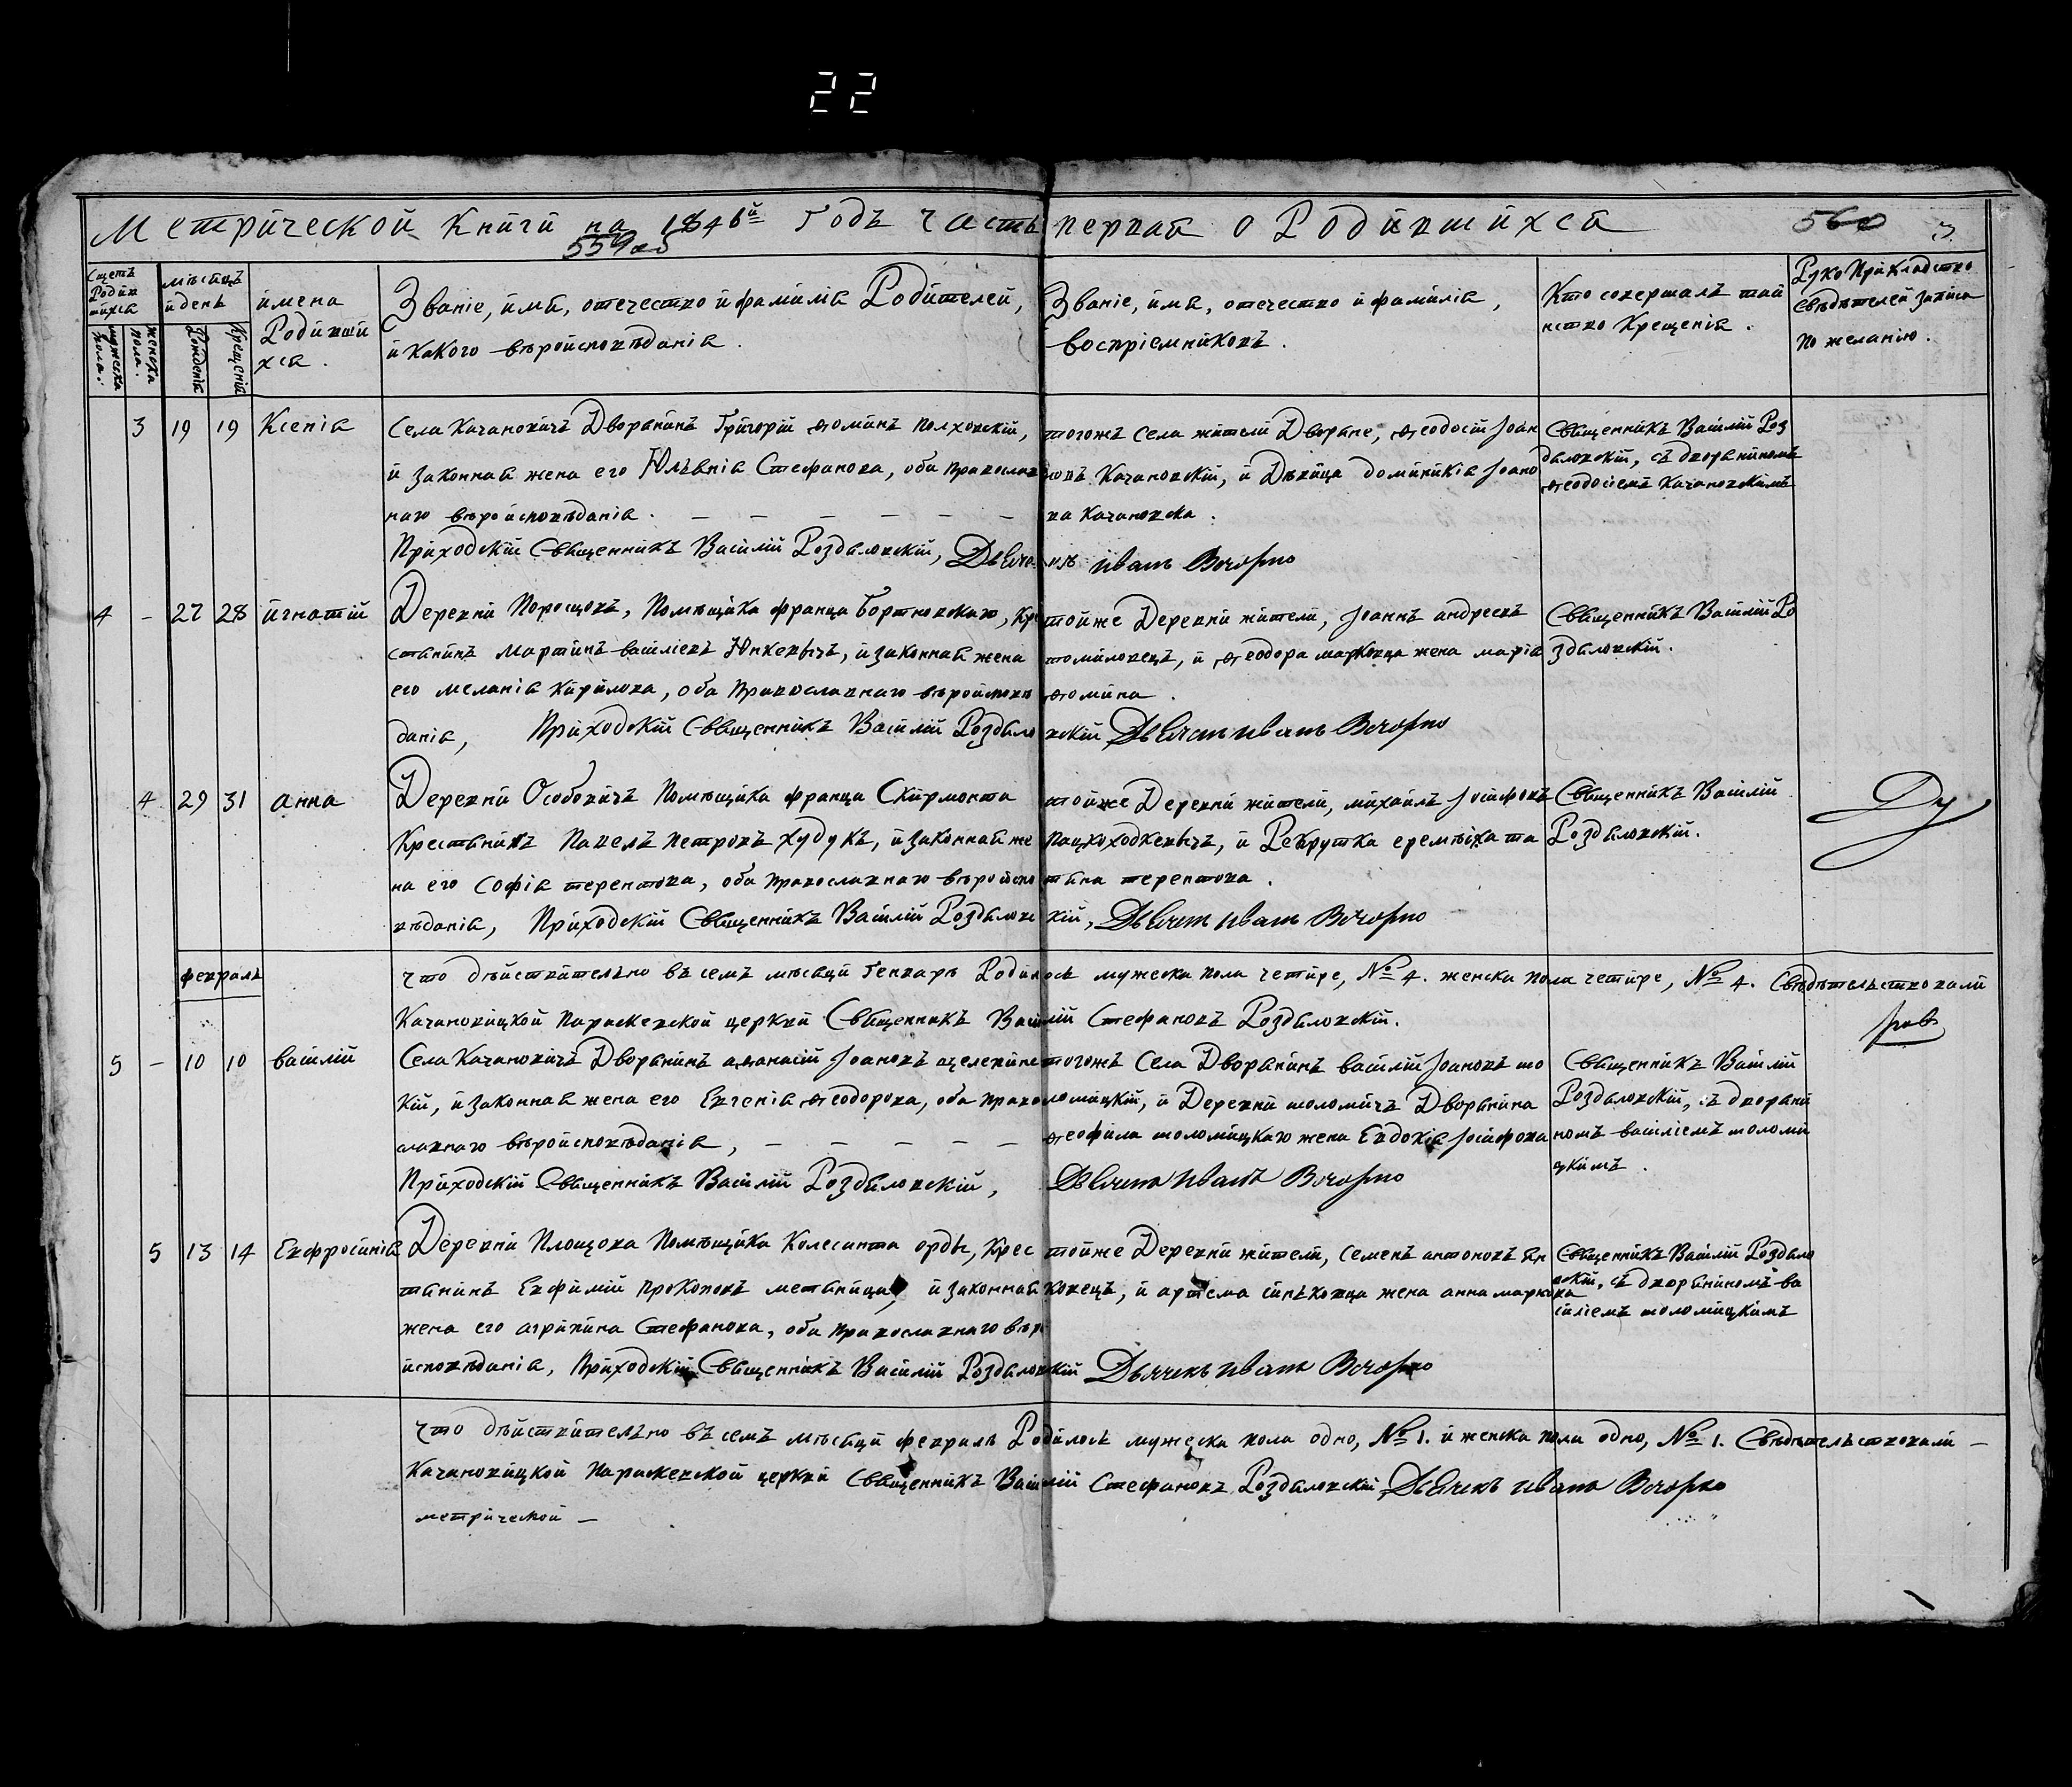 22
Метрической Книги на 1846й Годъ часть первая о Родившихся 560 3
559 об
Щетъ Родившихся
мужеска пола.
женска пола.
мѣсяцъ и день
Рожденія
Крещенія
имена Родившихся.
Званіе, имя, отечество и фамилія Родителей,
и какого вѣроисповѣданія.
Званіе, имя, отечество и фамилія,
воспріемниковъ.
Кто совершалъ таи
нство Крещенія.
Рукоприкладство
свѣдѣтелей записи
по желанію.
3 19 19 Ксенія Села Качановичъ Дворянинъ Григорій Ѳоминъ Полховскій,
и законная жена его Юлѣанія Стефанова, оба православ
наго вѣроисповѣданія. — — — — — —
тогожъ Села жители Дворане, Ѳеодосій Іоан
новъ Качановскій, и Дѣвица доминикія Іоано
ва Качановска.
Священникъ Василій Роз
дяловскій, съ дворяниномъ
Ѳеодосіемъ Качановскимъ
Приходскій Священникъ Василій Роздяловскій, Дьячокъ иванъ
4 — 27 28 игнатій Деревни Порещокъ, Помѣщика франца Бортновскаго, Кре
стянинъ мартинъ василіевъ Юнкевичъ, и законная жена
его меланія Кирилова, оба православнаго вѣроисповѣ
данія, Приходскій Священникъ Василій Роздяловскій Дьячокъ иванъ
тойже Деревни жители, Іоаннъ андреевъ
томиловецъ, и Ѳеодора марковца жена марія
Ѳомина.
Священникъ Василій Ро
здяловскій.
4 29 31 анна Деревни Особовичъ Помѣщика франца Скирмонта
Крестянинъ Павелъ Петровъ худукъ, и законная же
на его Софія терентова, оба православнаго вѣроиспо
вѣданія, Приходскій Священникъ Василій Роздяловскій, Дьячокъ иванъ
тойже Деревни жители, михаилъ Іосифовъ
Пацкоходкевичъ, и Рекрутка еремѣиха та
тяна терентова.
Священникъ Василій
Роздяловскій.
февраль
что дѣйствительно въ семъ мѣсяци Генварь Родилось мужеска пола четире, № 4. женска пола четире, № 4. Свѣдѣтельствовали
Качановицкой Параскевской церкви Священникъ Василій Стефановъ Роздяловскій.
5 — 10 10 василій Села Качановичъ Дворянинъ аѳанасій Іоановъ щелепинс
кій, и законная жена его Евгенія Ѳеодорова, оба право
славнаго вѣроисповѣданія, — — — — —
тогожъ Села Дворянинъ василій Іоановъ то
ломицкій, и Деревни толомичъ Дворянина
Ѳеофила толомицкаго жена Евдокія Іосифова
Священникъ Василій
Роздяловскій, съ дворяни
номъ василіемъ толоми
цкимъ.
Приходскій Священникъ Василій Роздяловскій, Дьячокъ иванъ
5 13 14 Евфросинія Деревни Площова Помѣщика Колесинта орды, Крес
тянинъ Евфимій Прокоповъ метлница, и законная
жена его агрипина Стефанова, оба православнаго вѣро
исповѣданія, Приходскій Священникъ Василій Роздяловскій Дьячекъ иванъ
тойже Деревни жители, семенъ антоновъ ян
ковецъ, и артема синковца жена анна маркова
Священникъ Василій Роздяло
вскій, съ дворяниномъ ва
силіемъ толомицкимъ
что дѣйствительно въ семъ мѣсяци февраль Родилось мужеска пола одно, № 1. и женска пола одно, № 1. Свѣдѣтельствовали —
Качановицкой Параскевской церкви Священникъ Василій Стефановъ Роздяловскій Дьячекъ иванъ
метрической —